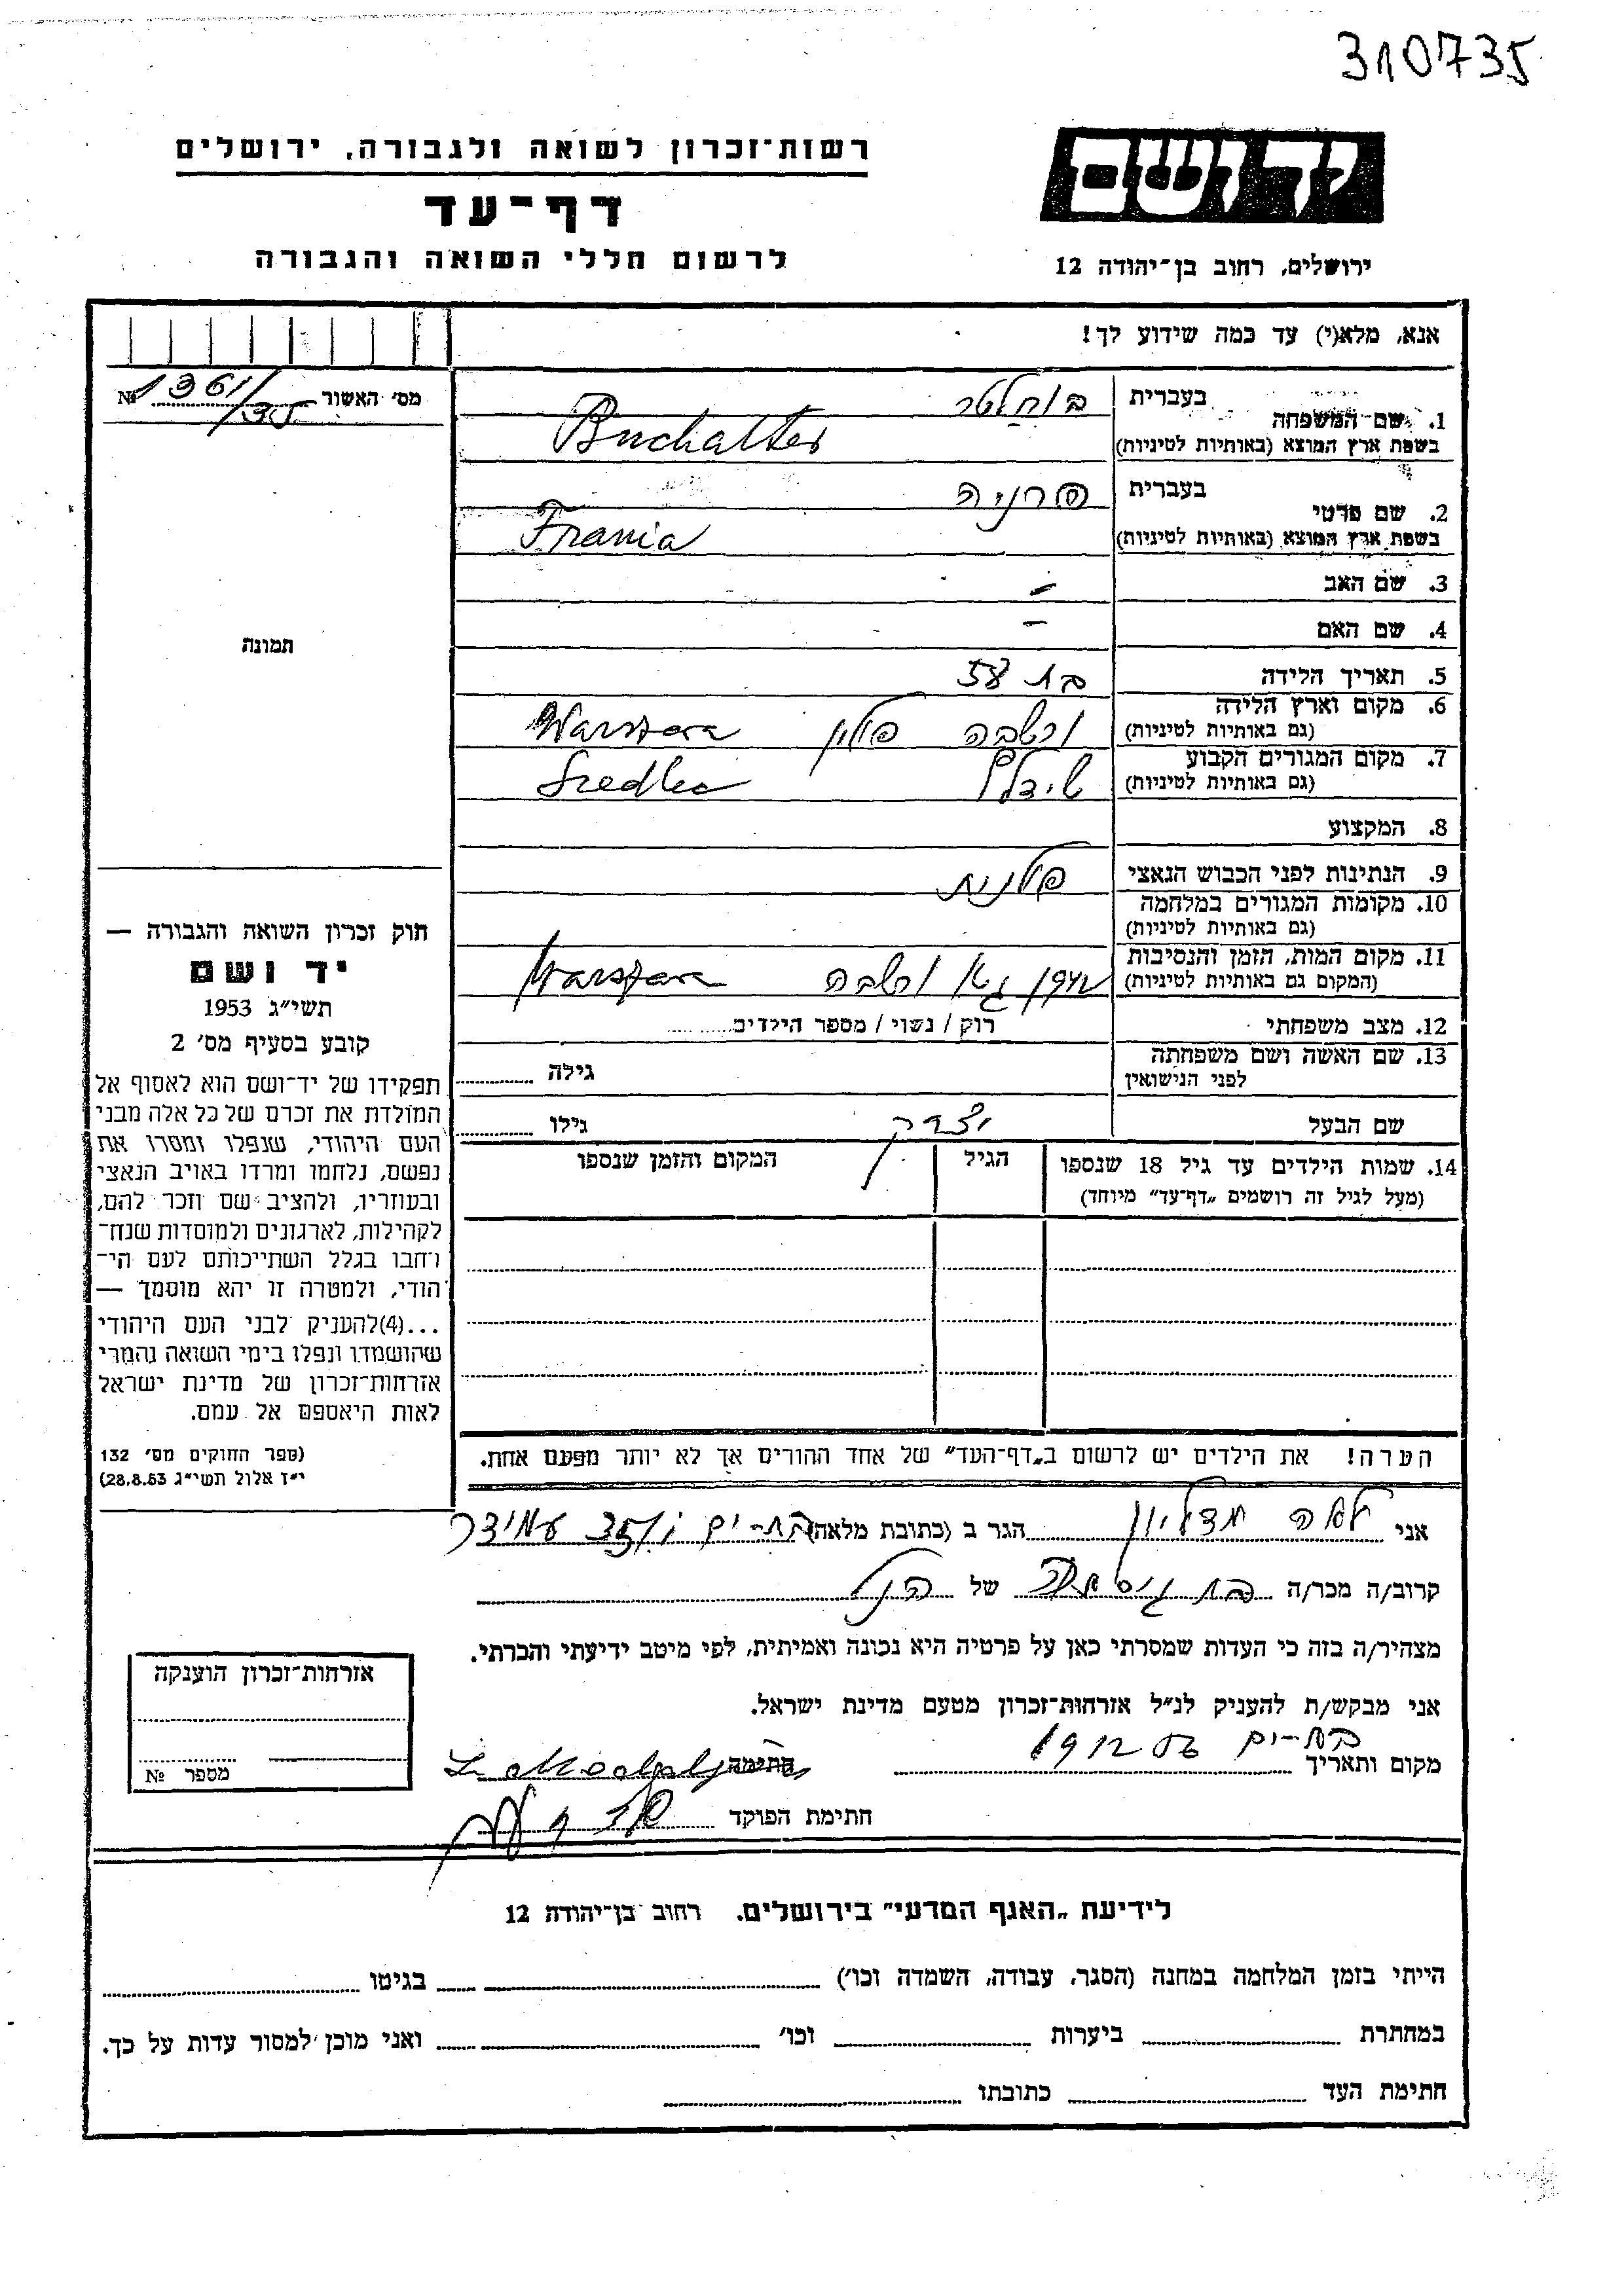 310735
ידושם
רשות־זכרון לשואה ולגבורה, ירושלים
דף־עד
לרשום חללי השואה והגבורה
ירושלים, רחוב בן־יהודה 12
אנא, מלא(י) עד כמה שידוע לך!
מס׳ האשור № 1361/35
1. שם המשפחה בעברית בוחלטר
בשפת ארץ המוצא (באותיות לטיניות) Buchalter
2. שם פרטי בעברית פרניה
בשפת ארץ המוצא (באותיות לטיניות) Frania
3. שם האב –
4. שם האם –
תמונה
5. תאריך הלידה בת 38
6. מקום וארץ הלידה
(גם באותיות לטיניות) ורשבה פולין Warszawa
7. מקום המגורים הקבוע
(גם באותיות לטיניות) שידלץ Siedlec
8. המקצוע
9. הנתינות לפני הכבוש הנאצי פולנית
10. מקומות המגורים במלחמה
(גם באותיות לטיניות)
11. מקום המות, הזמן והנסיבות
(המקום גם באותיות לטיניות) ורשבה Warszawa
12. מצב משפחתי רוק / נשוי / מספר הילדים
13. שם האשה ושם משפחתה
לפני הנישואין גילה
שם הבעל יצחק גילו
14. שמות הילדים עד גיל 18 שנספו הגיל המקום והזמן שנספו
(מעל לגיל זה רושמים „דף־עד״ מיוחד)
הערה! את הילדים יש לרשום ב„דף־העד״ של אחד ההורים אך לא יותר מפעם אחת.
חוק זכרון השואה והגבורה —
יד ושם
תשי״ג 1953
קובע בסעיף מס׳ 2
תפקידו של יד־ושם הוא לאסוף אל
המולדת את זכרם של כל אלה מבני
העם היהודי, שנפלו ומסרו את
נפשם, נלחמו ומרדו באויב הנאצי
ובעוזריו, ולהציב שם וזכר להם,
לקהילות, לארגונים ולמוסדות שנח־
רחבו בגלל השתייכותם לעם הי־
הודי, ולמטרה זו יהא מוסמך —
...(4)להעניק לבני העם היהודי
שהושמדו ונפלו בימי השואה והמרי
אזרחות־זכרון של מדינת ישראל
לאות היאספם אל עמם.
(ספר החוקים מס׳ 132
י״ז אלול תשי״ג 28.8.53)
אני לאה הגר ב (כתובת מלאה) בת-ים עמידר
קרוב/ה מכר/ה בת גיסתה של הנ״ל
מצהיר/ה בזה כי העדות שמסרתי כאן על פרטיה היא נכונה ואמיתית, לפי מיטב ידיעתי והכרתי.
אני מבקש/ת להעניק לנ״ל אזרחות־זכרון מטעם מדינת ישראל.
מקום ותאריך בת-ים 19 12 56 חתימה
חתימת הפוקד
אזרחות־זכרון הוענקה
מספר №
לידיעת „האגף המדעי״ בירושלים. רחוב בן־יהודה 12
הייתי בזמן המלחמה במחנה (הסגר, עבודה, השמדה וכו׳) בגיטו
במחתרת ביערות וכו׳ ואני מוכן למסור עדות על כך.
חתימת העד כתובתו